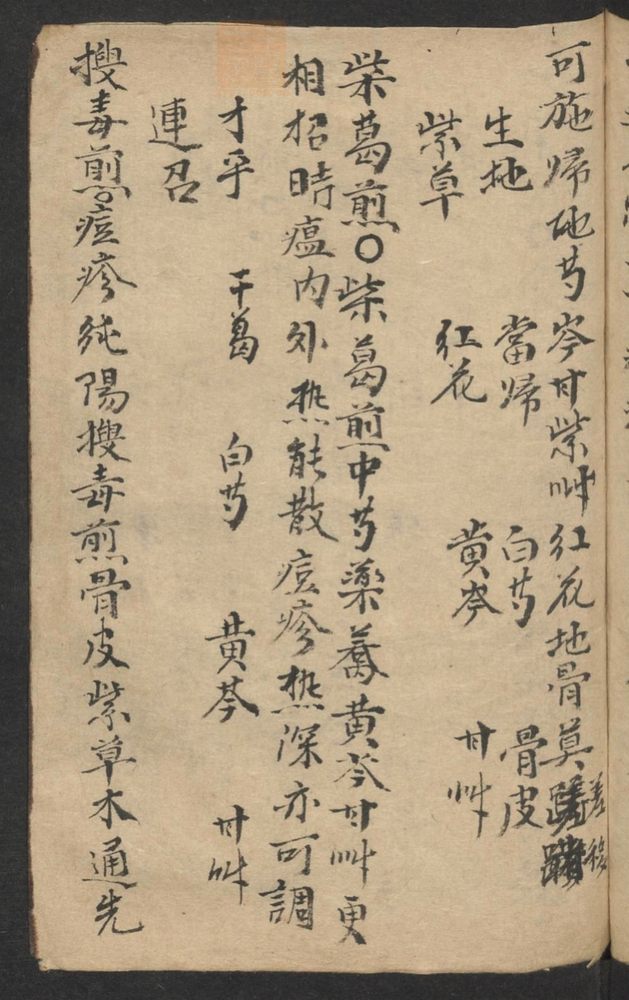 可施歸地芍岑甘紫艸紅花地骨莫蹉
差
生地　當歸　白芍　骨皮
紫草　紅花　黄岑　甘艸
柴葛煎〇柴葛煎中芍藥喬黄芩甘艸更
相招時瘟内外热能散痘疹热深亦可調
才乎　干葛　白芍　黄芩　甘艸
連召
搜毒煎〇痘疹純陽搜毒煎骨皮紫草木通先